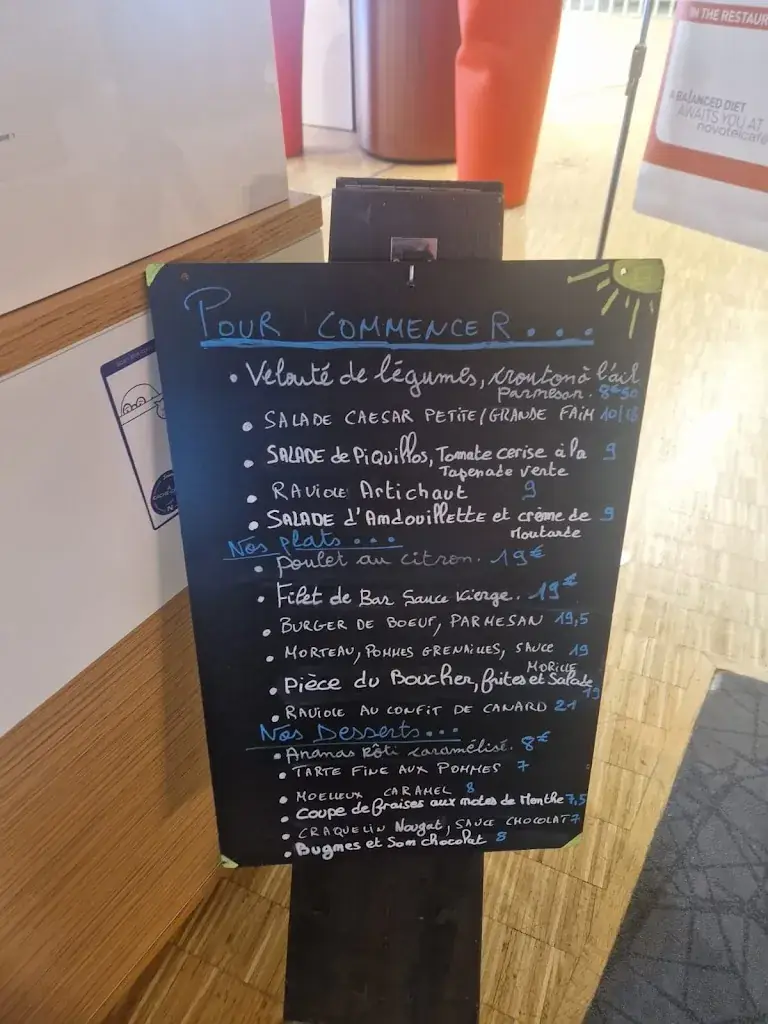 IN THE RESTAUR
A BALANCED DIET
AWAITS YOU AT
novotelcafé
POUR COMMENCER...
• Velouté de légumes, croutons à l'ail
parmesan. 8€50
• SALADE CAESAR PETITE/GRANDE FAIM 10/18
• SALADE de PiQUillos, Tomate cerise à la 9
Tapenade verte
• RAVIOLE Artichaut 9
• SALADE d'Andouillette et crème de 9
Moutarde
Nos plats...
• Poulet au citron. 19€
• Filet de Bar Sauce Vierge. 19€
• BURGER DE BOEUF, PARMESAN 19,5
• MORTEAU, POMMES GRENAILLES, SAUCE 19
MORILLE
• Pièce du Boucher, frites et Salade
19
• RAVIOLE AU CONFIT DE CANARD 21
Nos Desserts...
• Ananas Rôti caramélisé. 8€
• TARTE FINE AUX POMMES 7
• MOELLEUX CARAMEL 8
• Coupe de fraises aux notes de Menthe 7,5
• CRAQUELIN Nougat, SAUCE CHOCOLAT 7
• Bugnes et Son chocolat 8